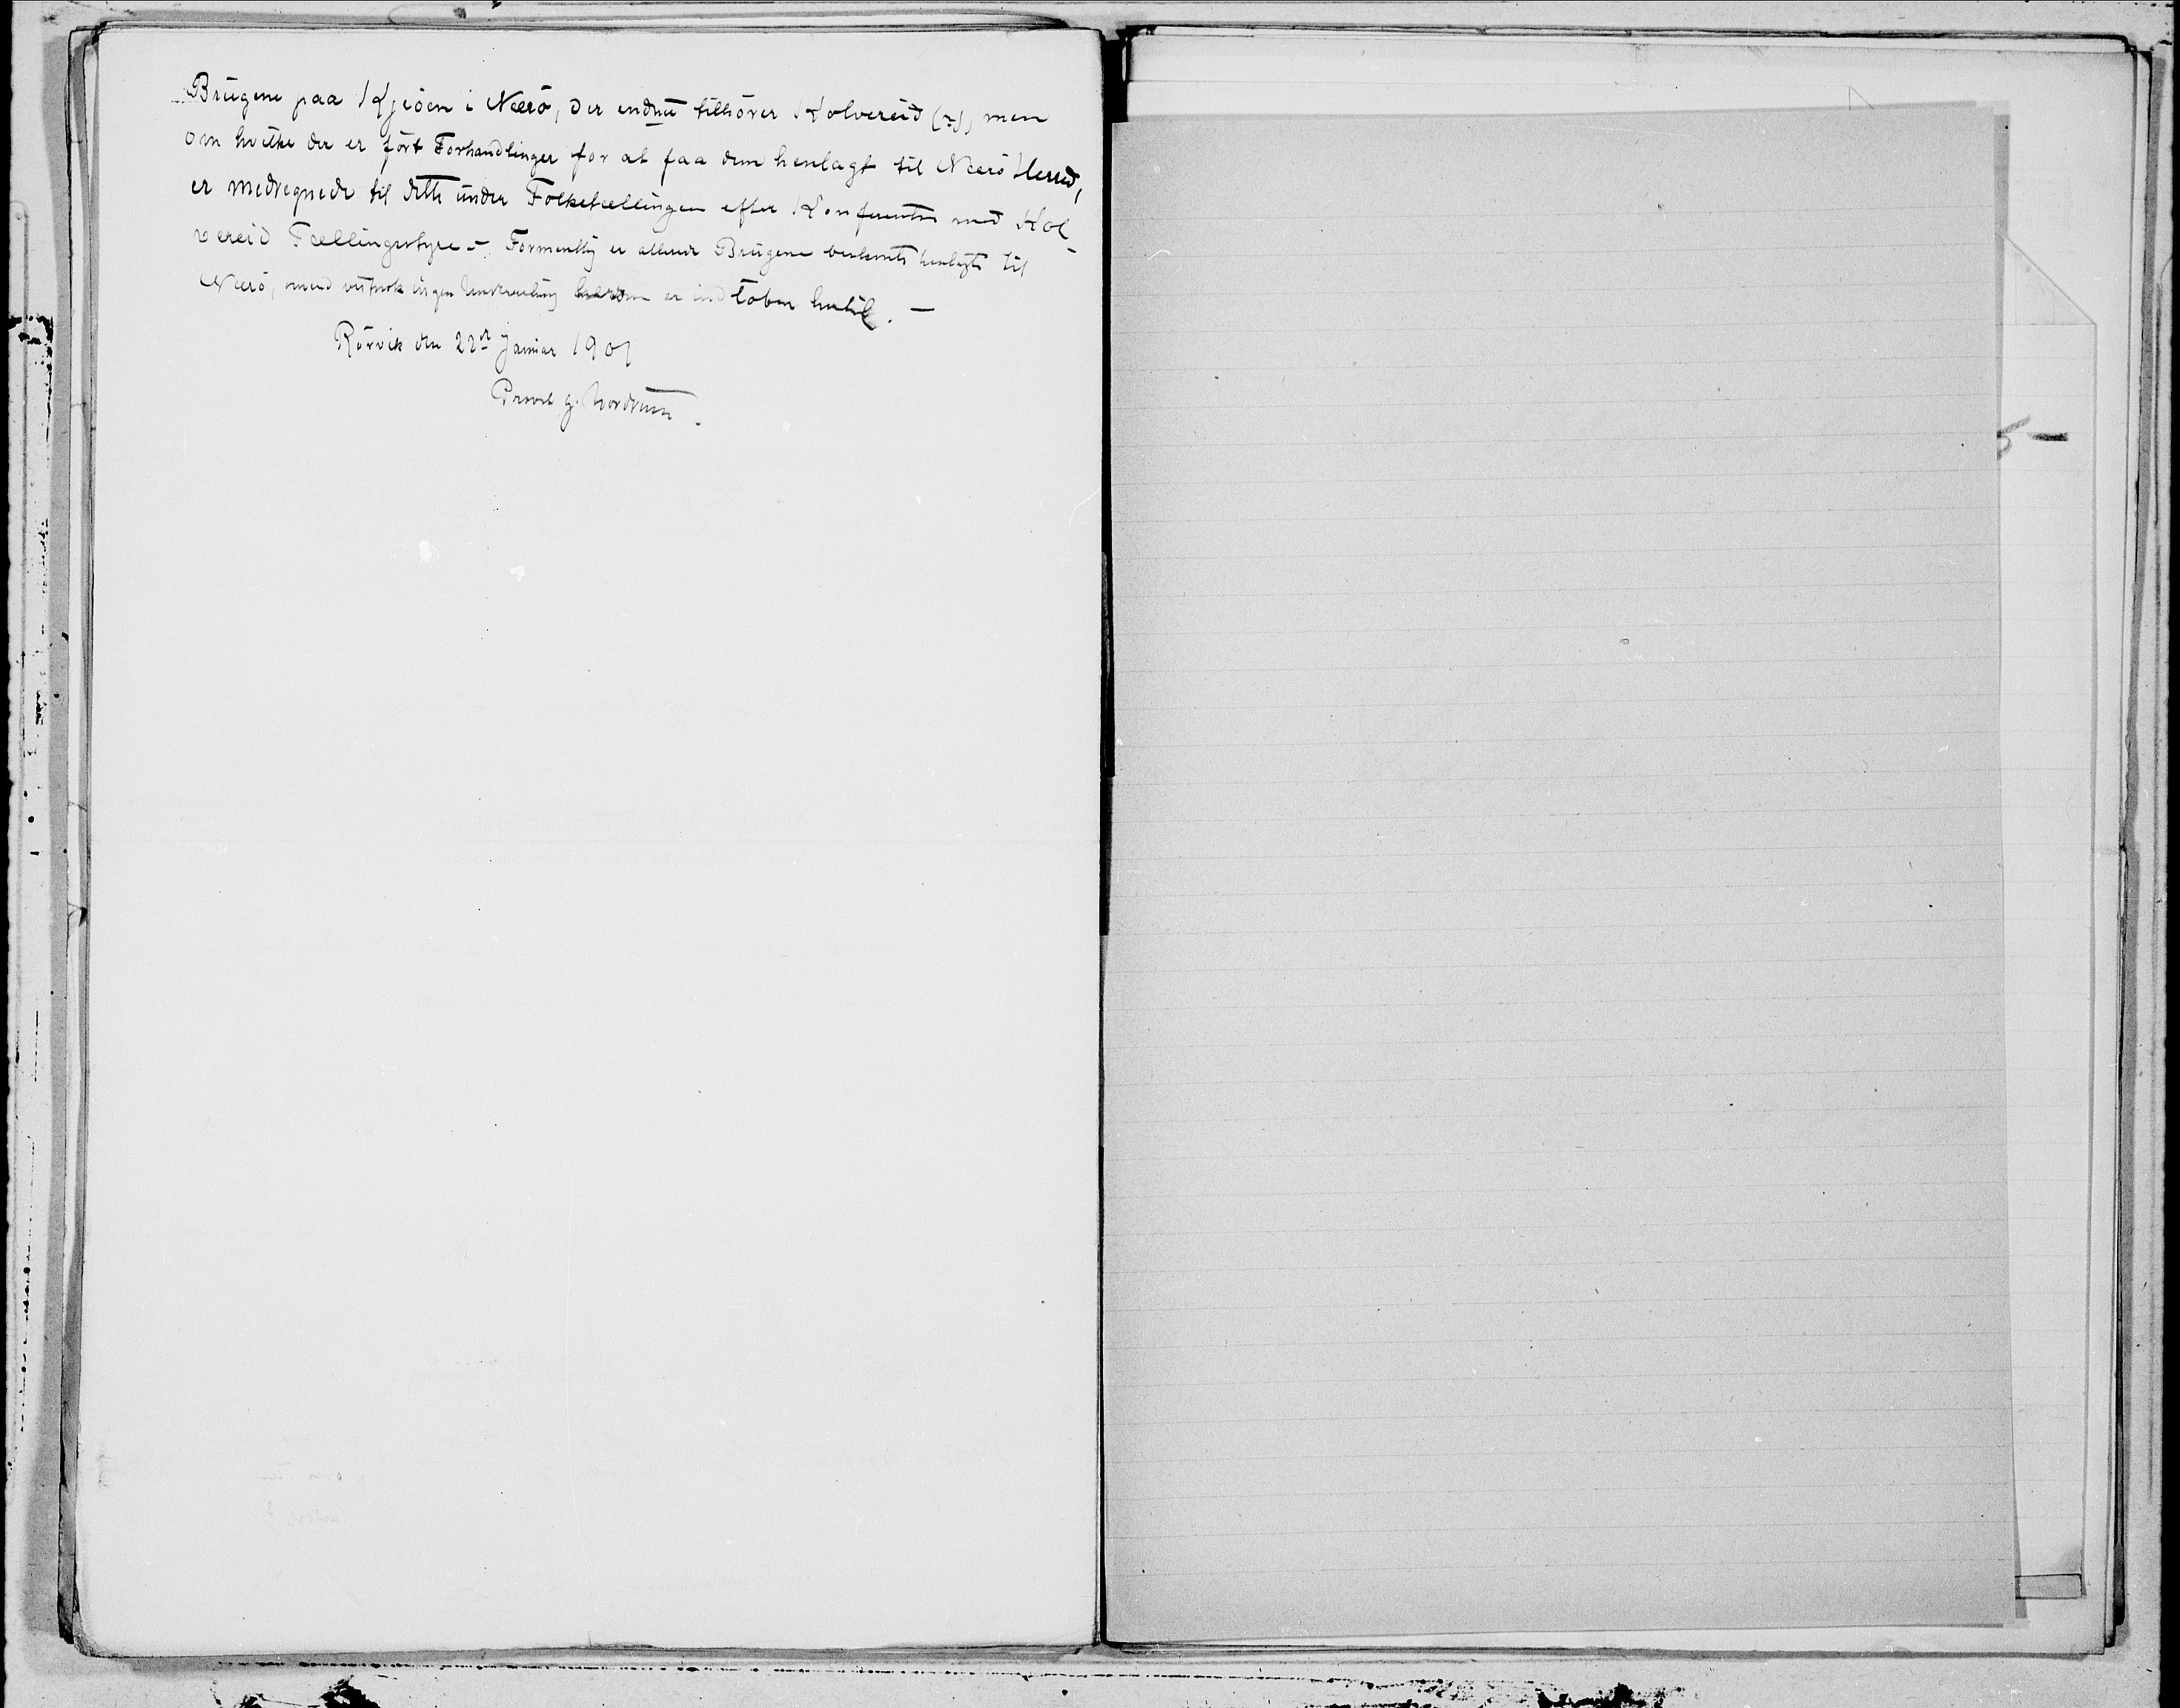 Brugene paa Kjeöen i Nærö, der endnu tilhörer Kolvereid (?), men
om hvilke der er fört Forhandlinger for at faa dem henlagt til Nærö Herred,
er medregnede til dette under Folketællingen efter Konferentse med Kol-
vereid Tællingsstyre. – Formentlig er allerede Brugene bestemte henlagte til
Nærö, ingen er indloben hertil. –
Rörvik den 22de Januar 1901